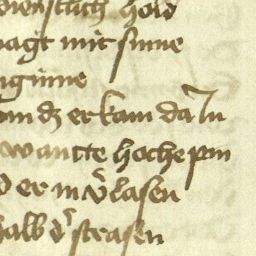 dienstlich hold
sagt mit sinne
nigūnne
om dz er kam da In
wantte hoche pin
D er in v̾lasen
halb d̾ strasen